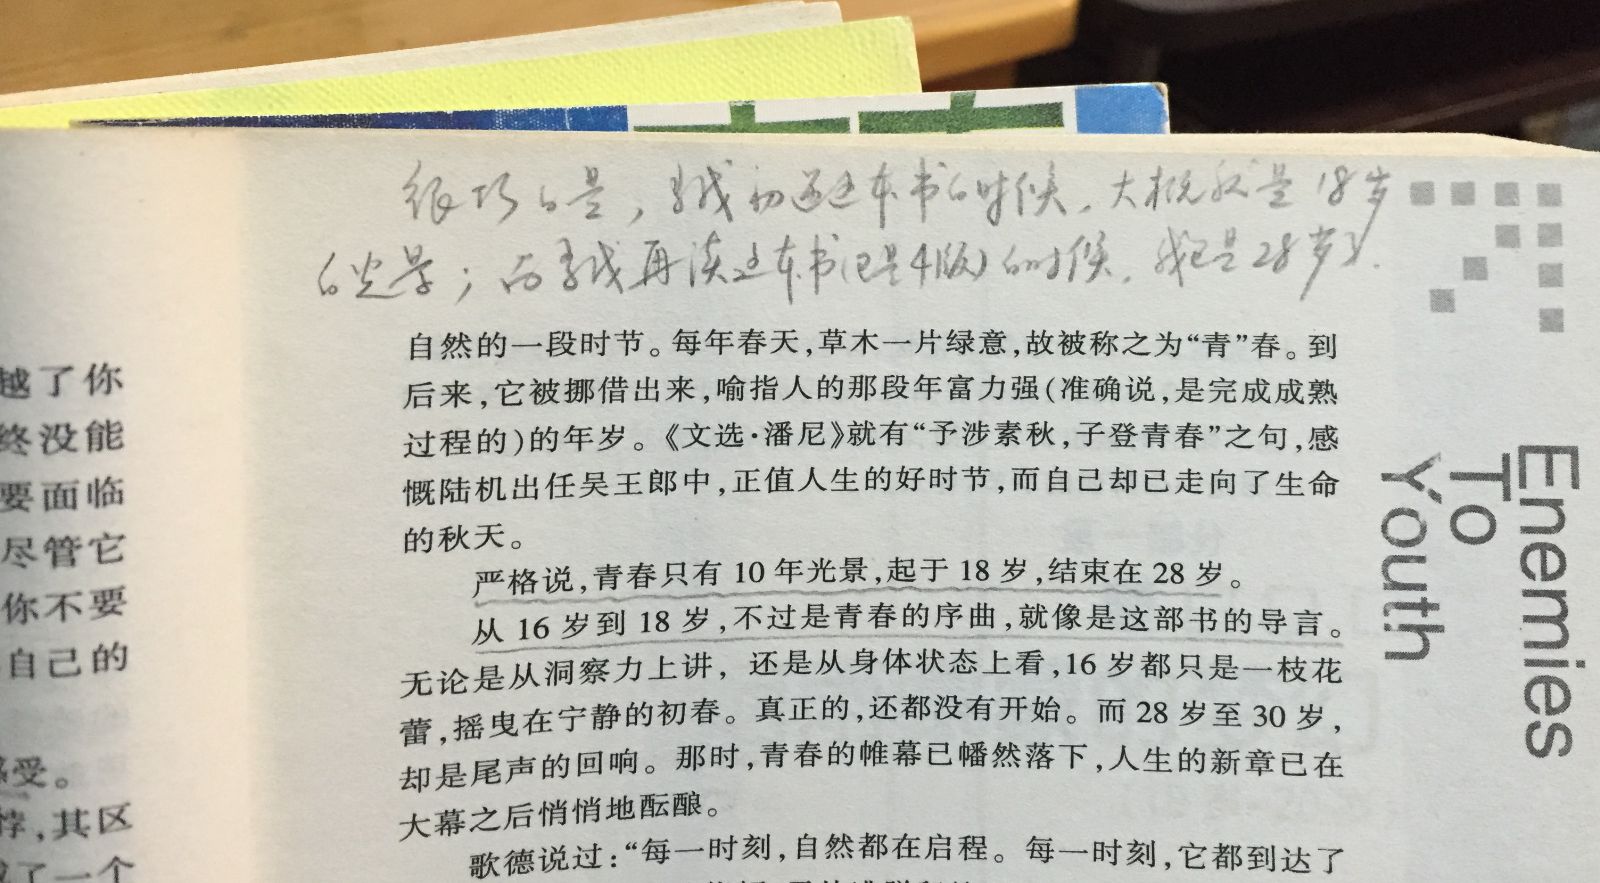 很巧的是，当我初遇这本书的时候，大概就是18岁
的光景；而当我再读这本书(已是4版)的时候，我已是28岁了.
自然的一段时节。每年春天，草木一片绿意，故被称之为“青”春。到
后来，它被挪借出来，喻指人的那段年富力强(准确说，是完成成熟
过程的)的年岁。《文选·潘尼》就有“予涉素秋，子登青春”之句，感
慨陆机出任吴王郎中，正值人生的好时节，而自己却已走向了生命
的秋天。
严格说，青春只有 10 年光景，起于 18 岁，结束在 28 岁。
从 16 岁到 18 岁，不过是青春的序曲，就像是这部书的导言。
无论是从洞察力上讲，还是从身体状态上看，16 岁都只是一枝花
蕾，摇曳在宁静的初春。真正的，还都没有开始。而 28 岁至 30 岁，
却是尾声的回响。那时，青春的帷幕已幡然落下，人生的新章已在
大幕之后悄悄地酝酿。
歌德说过：“每一时刻，自然都在启程。每一时刻，它都到达了
越了你
终没能
要面临
尽管它
你不要
自己的
感受。
，其区
了一个
Enemies
To
Youth